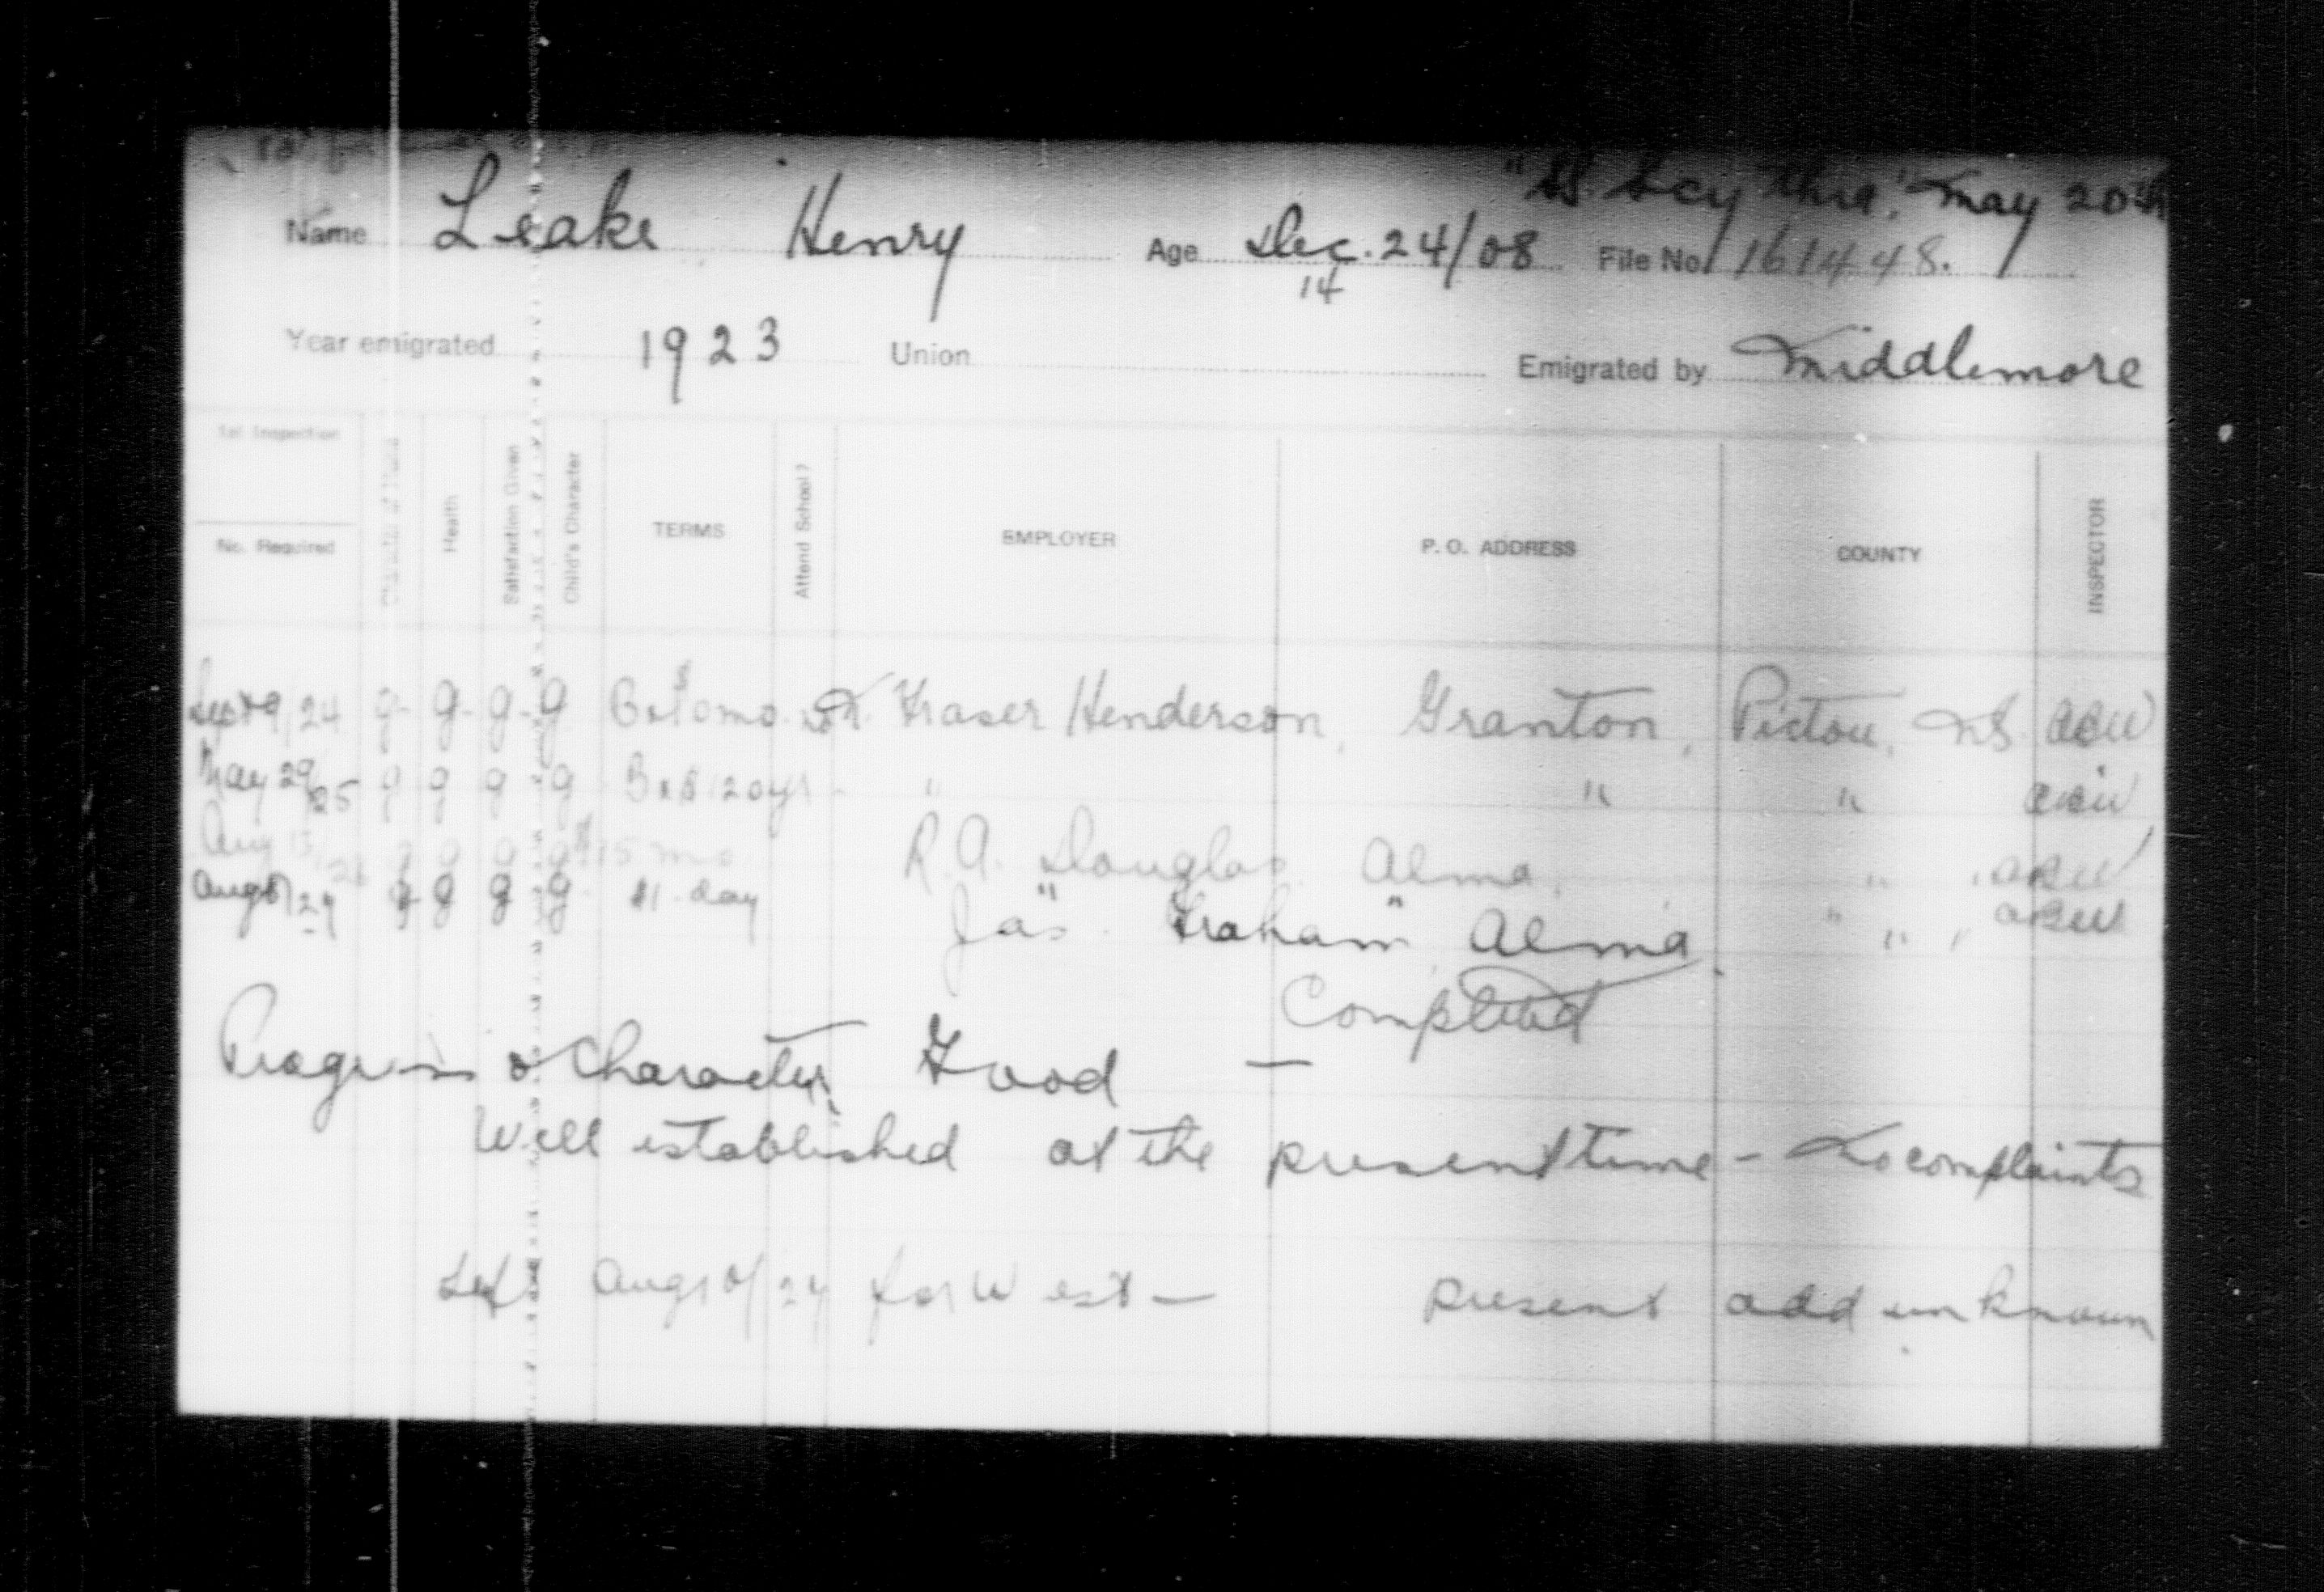 "SS. Scythia." May 20th
Name Leake Henry Age Dec. 24/08 File No. 161448.
14
Year emigrated 1923 Union Emigrated by Middlemore
1st Inspection
No. Required
Character of Home
Health
Satisfaction Given
Child's Character
TERMS
Attend School?
EMPLOYER
P. O. ADDRESS
COUNTY
INSPECTOR
Sept 9/24 g. g. g. g Fraser Henderson, Granton, Pictou, NS.
May 29/25 g g g g " " "
Aug g g g g 15 mo R. A. Douglas, Alma, "
g g g g $1. day Jas. Graham Alma. " "
Completed
Progress & Character Good —
Well established at the present time - No complaints
Left for West — present add unknown